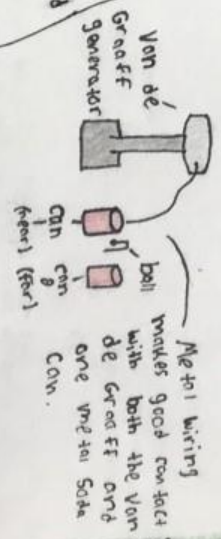 Van dé
Graaff
generator
ball
can
(near)
can
(far)
Metal wiring
makes good contact
with both the Van
de Graaff and
one metal soda
can.